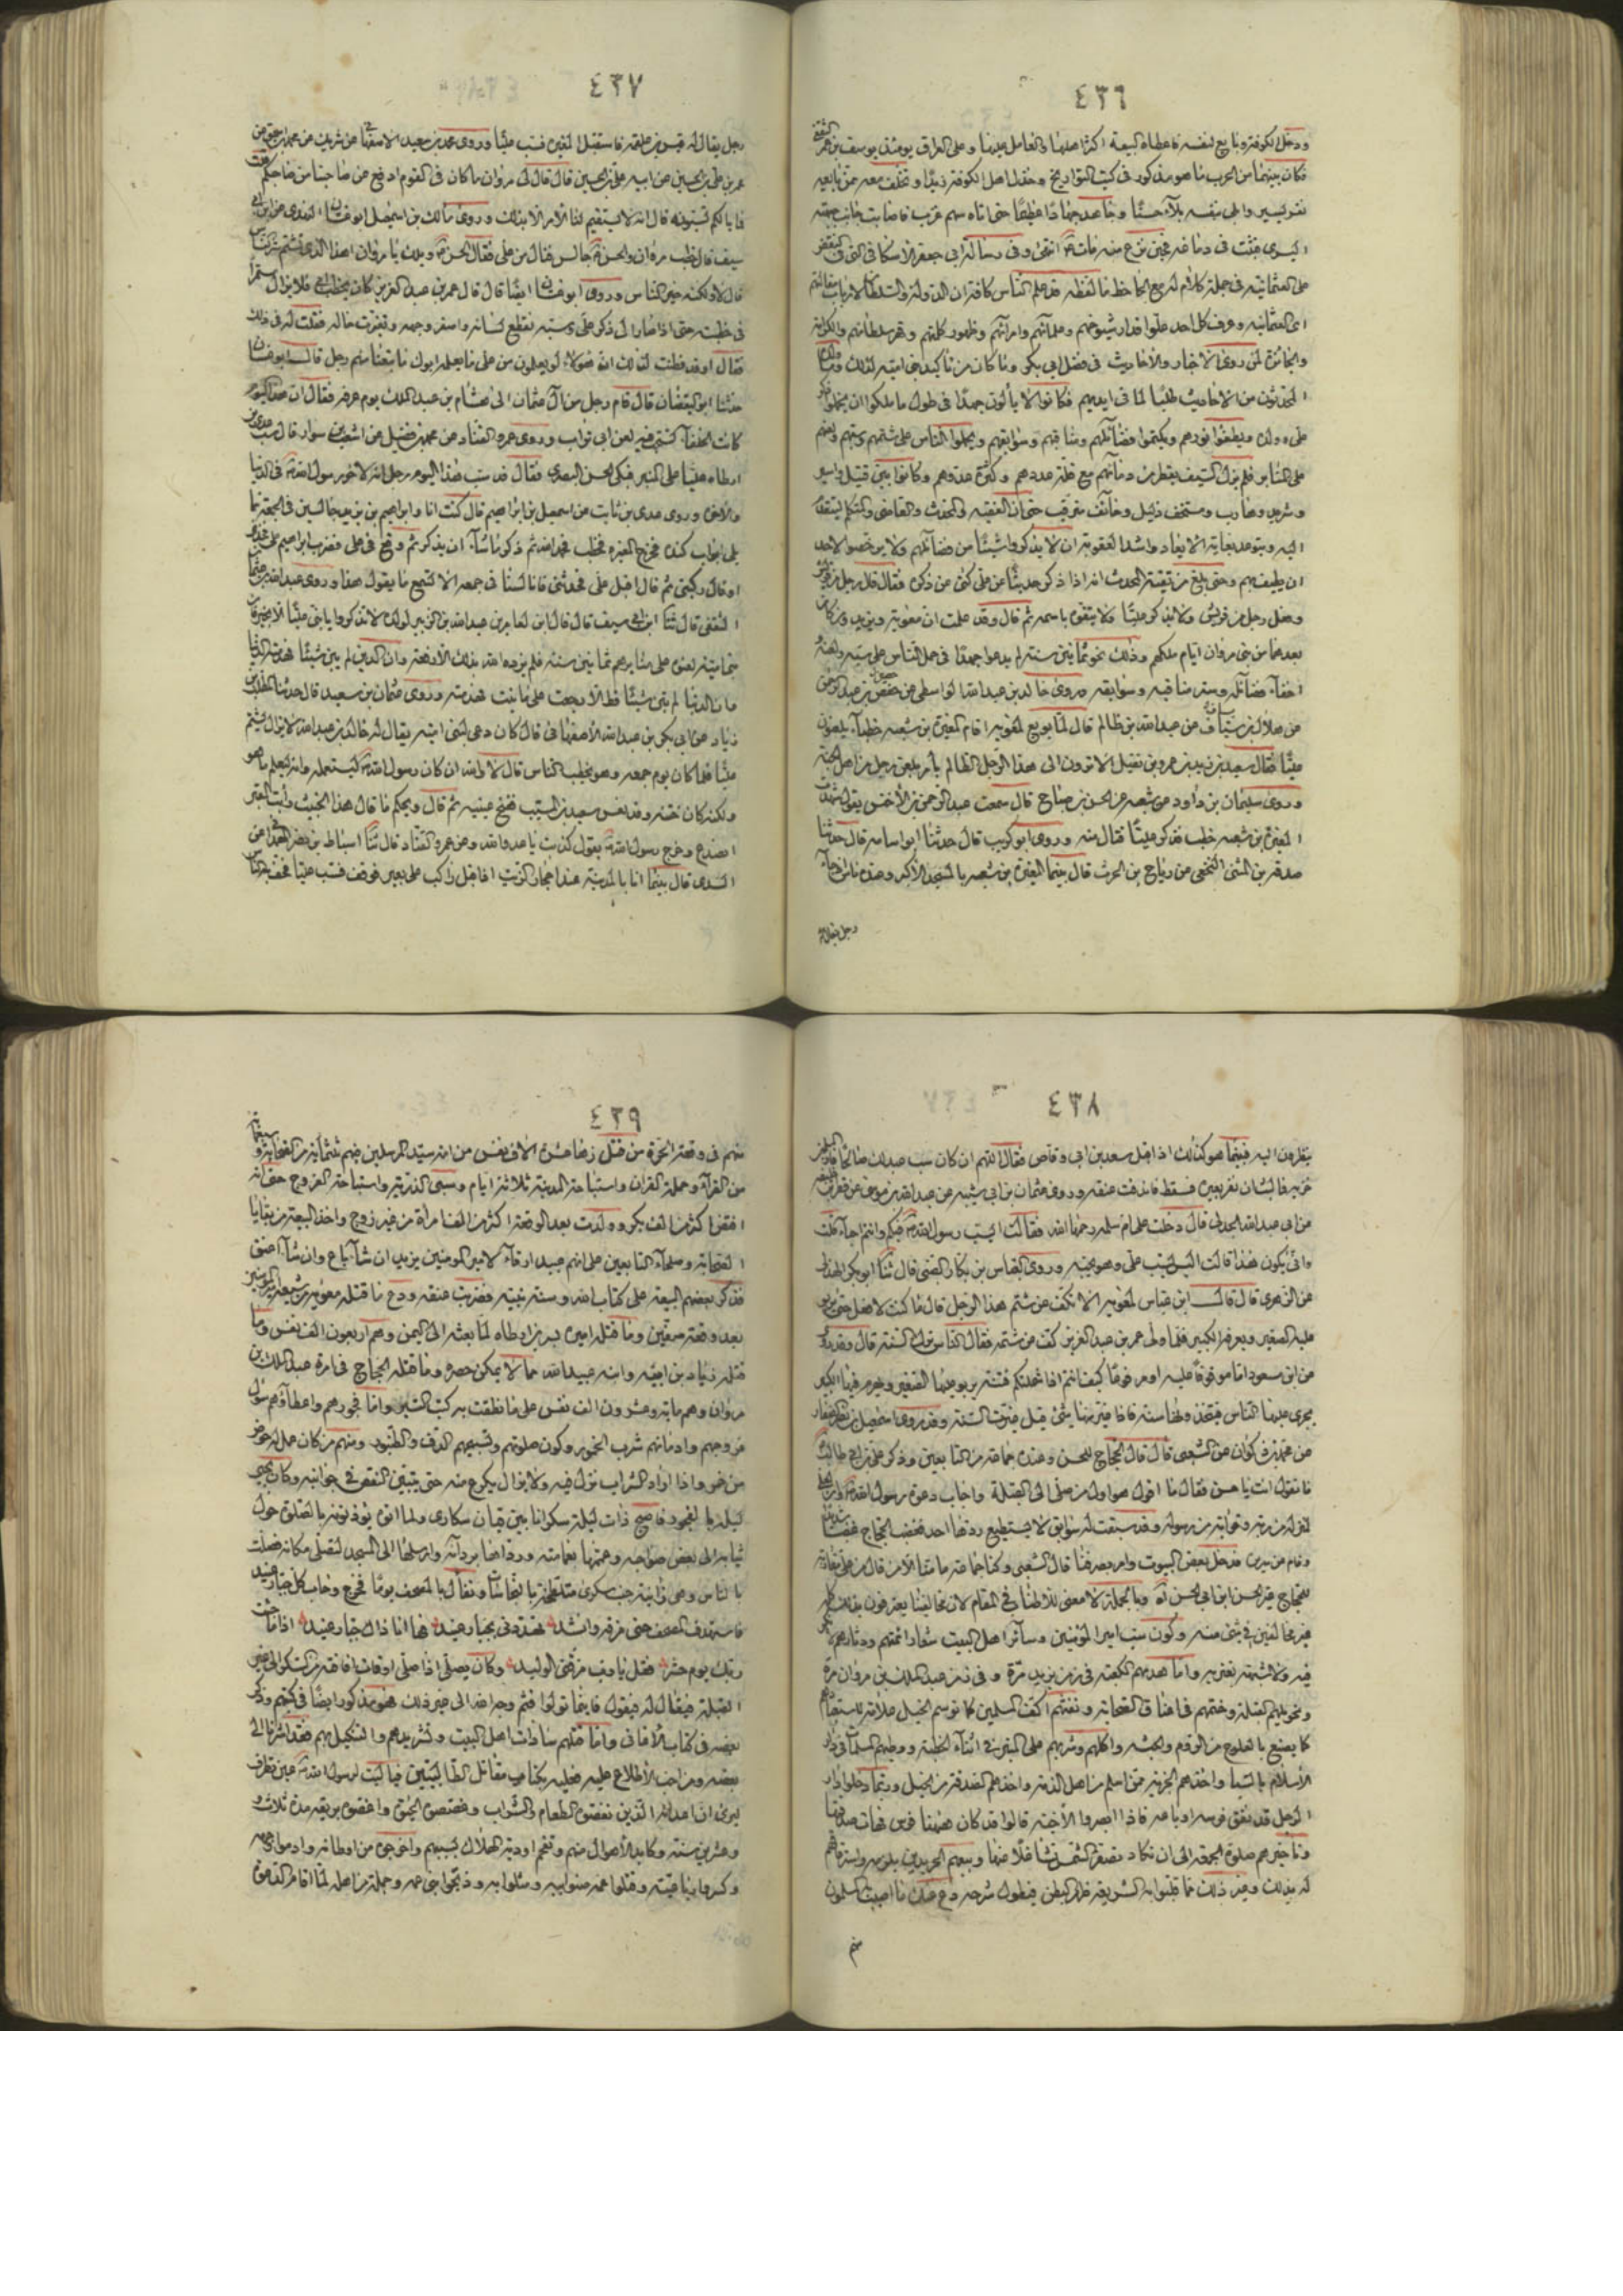 ٤٣٦
ودخل الكوفة وبايع لنفسه فاعطاه البيعة اكثر اهلها والعامل عليها وعلى العراق يومئذ يوسف بن عمر الثقفي
فكان بينهما من الحرب ما هو مذكور في كتب التواريخ وخذل اهل الكوفة زيدا وتخلف معه ممن تابعه
نفر يسير وابلى بنفسه بلاء حسنا وجاهد جهادا عظيما حتى اتاه سهم غرب فاصاب جانب جبهته
اليسرى فثبت في دماغه فحين نزع منه مات انتهى وفى رسالة ابى جعفر الاسكافى التى في نقض
على العثمانية في جملة كلام له مع الجاحظ ما لفظه قد علم الناس كافة ان الدولة والسلطان لارباب مقالتهم
اى العثمانية وعرف كل احد علو اقدار شيوخهم وعلمائهم وامرائهم وظهور كلمتهم وقهر سلطانهم والكرامة
والجائزة لمن روى الاخبار والاحاديث في فضل ابى بكر وما كان من تاكيد بنى امية لذلك وما ولده
المحدثون من الاحاديث طلبا لما في ايديهم فكانوا لا يألون جهدا في طول ما ملكوا ان يخملوا ذكر
على وولده ويطفئوا نورهم ويكتموا فضائلهم ومناقبهم وسوابقهم ويحملوا الناس على شتمهم وسبهم ولعنهم
على المنابر فلم يزل السيف يقطر من دمائهم مع قلة عددهم وكثرة عدوهم وكانوا بين قتيل واسير
وشريد وهارب ومستخف ذليل وخائف مترقب حتى ان الفقيه والمحدث والقاضى والمتكلم ليتقدم
اليه ويتوعد بغاية الايعاد واشد العقوبة ان لا يذكروا شيئا من فضائلهم ولا يرخصوا لاحد
ان يطيف بهم وحتى بلغ من تقية المحدث انه اذا ذكر حديثا عن على كنى عن ذكره فقال قال رجل من قريش
وفعل رجل من قريش ولا يذكر عليا ولا يتفوه باسمه ثم قال وقد علمت ان معوية ويزيد ومن كان
بعدهما من بنى مروان ايام ملكهم وذلك نحو ثمانين سنة لم يدعوا جهدا في حمل الناس على سبه ولعنه
اخفاء فضائله وستر مناقبه وسوابقه وروى خالد بن عبد الله الواسطى عن حصين بن عبد الرحمن
عن هلال بن يساف عن عبد الله بن ظالم قال لما بويع لمعوية اقام المغيرة بن شعبة خطباء يلعنون
عليا فقال سعيد بن زيد بن عمرو بن نفيل الا ترون الى هذا الرجل الظالم يأمر بلعن رجل من اهل الجنة
وروى سليمان بن داود عن شعبة عن الحسن بن صباح قال سمعت عبد الرحمن بن الاخنس يقول شهدت
المغيرة بن شعبة خطب فذكر عليا فنال منه وروى ابو كريب قال حدثنا ابو اسامة قال حدثنا
صدقة بن المثنى النخعى عن رياح بن الحرث قال بينما المغيرة بن شعبة بالمسجد الاكبر وعنده ناس اذ جاء
رجل يقال له
٤٣٧
رجل يقال له قيس بن علقمة فاستقبل المغيرة فسب عليا وروى محمد بن سعيد الاصفهانى عن شريك عن محمد بن اسحق عن
عمر بن على بن الحسين عن ابيه على بن الحسين قال قال لى مروان ما كان في القوم ادفع عن صاحبنا من صاحبكم قلت
فما بالكم تسبونه قال انه لا يستقيم لنا الامر الا بذلك وروى مالك بن اسمعيل ابو غسان النهدى عن ابن ابى
سيف قال خطب مروان والحسن جالس فنال من على فقال الحسن ويلك يا مروان اهذا الذى تشتم شر الناس
قال لا ولكنه خير الناس وروى ابو غسان ايضا قال قال عمر بن عبد العزيز كان ابى يخطب فلا يزال مستمرا
في خطبته حتى اذا صار الى ذكر على وسبه تقطع لسانه واصفر وجهه وتغيرت حاله فقلت له في ذلك
فقال اوقد فطنت لذلك ان هؤلاء لو يعلمون من على ما يعلمه ابوك ما تبعنا منهم رجل قال ابو غسان
حدثنا ابو اليقظان قال قام رجل من آل عثمان الى هشام بن عبد الملك يوم عرفة فقال ان هذا اليوم
كانت الخلفاء تستحب فيه لعن ابى تراب وروى عمرو القناد عن محمد بن فضيل عن اشعث بن سوار قال سب عدى بن
ارطاة عليا على المنبر فبكى الحسن البصرى فقال قد سب هذا اليوم رجل انه لاخو رسول الله في الدنيا
والاخرة وروى عدى بن ثابت عن اسمعيل بن ابراهيم قال كنت انا وابراهيم بن يزيد جالسين في الجمعة مما
يلى ابواب كندة فخرج المغيرة فخطب فحمد الله ثم ذكر ما شاء ان يذكر ثم وقع في على فضرب ابراهيم على فخذى
او قال ركبتى ثم قال اقبل على فحدثنى فانا لسنا في جمعة الا تسمع ما يقول هذا وروى عبد الله بن عثمان
الثقفى قال ثنا ابن ابى سيف قال قال ابن لعامر بن عبد الله بن الزبير لولده لا تذكروا يا بنى عليا الا بخير فان
بنى امية لعنوه على منابرهم ثمانين سنة فلم يزده الله بذلك الا رفعة وان الدين لم يبن شيئا فهدمته الدنيا
وان الدنيا لم تبن شيئا قط الا رجعت على ما بنت فهدمته وروى عثمان بن سعيد قال حدثنا مطلب بن
زياد عن ابى بكر بن عبد الله الاصفهانى قال كان دعى لبنى امية يقال له خالد بن عبد الله لا يزال يشتم
عليا فلما كان يوم جمعة وهو يخطب الناس قال لا والله ان كان رسول الله ليستعمله وانه ليعلم ما هو
ولكنه كان ختنه وقد نعس سعيد بن المسيب ففتح عينيه ثم قال ويحكم ما قال هذا الخبيث رأيت القبر
انصدع وخرج رسول الله يقول كذبت يا عدو الله وعن عمرو القناد قال ثنا اسباط بن نصر الهمدانى عن
السدى قال بينما انا بالمدينة عند احجار الزيت اذ اقبل راكب على بعير فوقف فسب عليا فخف به الناس
٤٣٨
ينظرون اليه فبينما هو كذلك اذ اقبل سعد بن ابى وقاص فقال اللهم ان كان سب عبدا لك صالحا فار المسلمين
خزيه فما لبث ان نفر بعيره فسقط فاندقت عنقه وروى عثمان بن ابى شيبة عن عبد الله بن موسى عن فطر بن خليفة
عن ابى عبد الله الجدلى قال دخلت على ام سلمة رحمها الله فقالت لى ايسب رسول الله فيكم وانتم احياء قلت
وانى يكون هذا قالت اليس يسب على ومن يحبه وروى العباس بن بكار الضبى قال ثنا ابو بكر الهذلى
عن الزهرى قال قال ابن عباس لمعوية الا تكف عن شتم هذا الرجل قال ما كنت لافعل حتى يربو
عليه الصغير ويهرم فيه الكبير فلما ولى عمر بن عبد العزيز كف عن شتمه فقال الناس ترك السنة قال وقد روى
عن ابن مسعود اما موقوفا عليه او مرفوعا كيف انتم اذا شملتكم فتنة يربو عليها الصغير ويهرم فيها الكبير
يجرى عليها الناس فيتخذونها سنة فاذا غير منها شئ قيل غيرت السنة وقد روى
عن محمد بن ذكوان عن الشعبى قال قال الحجاج للحسن وعنده جماعة من التابعين وذكر على بن ابى طالب
ما تقول انت يا حسن فقال ما اقول هو اول من صلى الى القبلة واجاب دعوة رسول الله وان لعلى
لمنزلة من ربه وقرابة من رسوله وقد سبقت له سوابق لا يستطيع ردها احد فغضب الحجاج غضبا شديدا
وقام عن سريره فدخل بعض البيوت وامر بصرفنا قال الشعبى وكنا جماعة ما منا الا من نال من على مقاربة
للحجاج غير الحسن ابن ابى الحسن وبالجملة لا معنى للاطناب في المقام لان مخالفينا يعترفون بذلك كله
غير مخالفين في شئ منه وكون سب امير المؤمنين وسائر اهل البيت شعار ائمتهم ودثارهم مما لا شك
فيه ولا شبهة تعتريه واما هدمهم الكعبة في زمن يزيد مرة وفى زمن عبد الملك بن مروان مرة
وتحويلهم القبلة وختمهم في اعناق الصحابة ونقشهم اكف المسلمين كما توسم الخيل علامة لاستعبادهم
كما يصنع بالعلوج من الروم والحبشة واكلهم وشربهم على المنبر في اثناء الخطبة ووطيهم المسلمات في دار
الاسلام بالسبا واخذهم الجزية ممن اسلم من اهل الذمة واخذهم الصدقة من الخيل وربما دخلوا دار
الرجل قد نفق فرسه او باعه فاذا ابصروا الآخية قالوا قد كان ههنا فرس فهات صدقتها
وتاخيرهم صلوة الجمعة الى ان تكاد تصفر الشمس تشاغلا عنها
له بذلك وغير ذلك مما قلبوا به الشريعة ظهر البطن فيطول شرحه ودع عنك ما اصيب المسلمون
منهم
٤٣٩
منهم في وقعة الحرة من قتل زهاء عشرة آلاف نفس من امة سيد المرسلين فيهم ثلثمائة من الصحابة وسبعمائة
من القراء وحملة القران واستباحة المدينة ثلاثة ايام وسبى الذرية واستباحة الفروج حتى انه
افتض اكثر من الف بكر وولدت بعد الوقعة اكثر من الف امرأة من غير زوج واخذ البيعة من بقايا
الصحابة وصلحاء التابعين على انهم عبيد ارقاء لامير المؤمنين يزيد ان شاء باع وان شاء اعتق
فذكر بعضهم البيعة على كتاب الله وسنة نبيه فضربت عنقه ودع ما قتله معوية من شيعة امير المؤمنين
بعد وقعة صفين وما قتله اميره بسر بن ارطاة لما بعثه الى اليمن وهم اربعون الف نفس وما
قتله زياد بن ابيه وابنه عبيد الله مما لا يمكن حصره وما قتله الحجاج في امرة عبد الملك بن
مروان وهم مائة وعشرون الف نفس على ما نطقت به كتب السير واما فجورهم واعطاؤهم سؤل
فروجهم وادمانهم شرب الخمور وكون صلوتهم وتسبيحهم الدف والطنبور ومنهم من كان عمل له حوض
من خمر واذا اراد الشراب نزل فيه ولا يزال يكرع منه حتى يتبين النقص في جوانبه وكان يحيى
ليله بالفجور فاصبح ذات ليلة سكرانا بين قيان سكارى ولما اتوه يؤذنونه بالصلوة حول
ثيابه الى بعض صواحبه وعممها بعمامته ورداها بردائه وارسلها الى المسجد لتصلى مكانه فصلت
بالناس وهى زانية جنب سكرى متلطخة بالنجاسات وتفأل بالمصحف يوما فخرج وخاب كل جبار عنيد
فاستهدف المصحف حتى مزقه وانشد تهددنى بجبار عنيد فها انا ذاك جبار عنيد اذا ما جئت
ربك يوم حشر فقل يا رب مزقنى الوليد وكان يصلى اذا صلى اوقات افاقته من السكر الى غير
القبلة فيقال له فيقول فاينما تولوا فثم وجه الله الى غير ذلك فهو مذكور ايضا في كتبهم وذكر
بعضه في كتاب الاغانى واما قتلهم سادات اهل البيت وتشريدهم والتنكيل بهم فقد اشرنا الى
بعضه ومن احب الاطلاع عليه فعليه بكتاب مقاتل الطالبيين فيا ليت لرسول الله عين تطرف
ليرى ان اعداءه الذين نغصوه الطعام والشراب وغصصوه الحنق واغصوه بريقه مدة ثلاث و
عشرين سنة وكابد الاهوال منهم وتقحم اودية الهلاك بسببهم واخرجوه من اوطانه وادموا وجهه
وكسروا رباعيته وقتلوا عمه صنو ابيه ومثلوا به وذبحوا بنى عمه وجملة من اهله لما اقام الدعوة